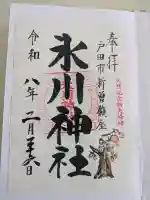 奉拝
戸田市新曽鎮座
氷川神社
令和八年二月二十六日